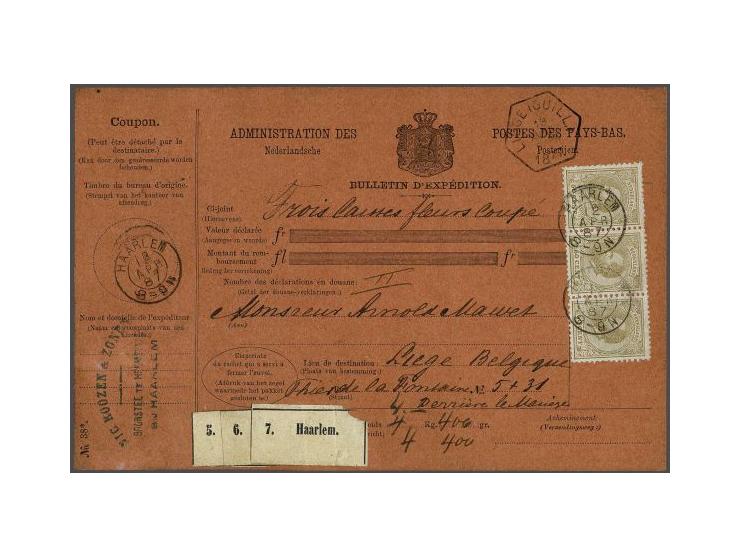 Coupon.
(Peut être détaché par le
destinataire.)
(Kan door den geadresseerde worden
behouden.)
Timbre du bureau d'origine.
(Stempel van het kantoor van
afzending.)
HAARLEM
8-9N
Nom et domicile de l'expéditeur
KOOZEN & ZONEN
HAARLEM
No. 38*.
ADMINISTRATION DES POSTES DES PAYS-BAS.
Nederlandsche Posterijen.
BULLETIN D'EXPÉDITION.
Ci-joint Trois caisses fleurs coupé
(Hiernevens)
Valeur déclarée fr
(Aangegeven waarde)
Montant du remboursement fl fr
Bedrag der verrekening
Nombre des déclarations en douane: II
(Getal der douane-verklaringen.)
Monsieur Arnold Mawet
(Aan)
Empreinte
du cachet qui a servi à
fermer l'envoi.
(Afdruk van het zegel
waarmede het pakket
gesloten is.)
Lieu de destination: Liege Belgique
(Plaats van bestemming.)
de la Fontaine N° 5 + 31
(Straat)
Derrière le Manège
5. 6. 7. Haarlem.
4 Kg. 400 gr.
4 400
Acheminement:
(Verzendingsweg:)
HAARLEM
12
APR
87
8-9N